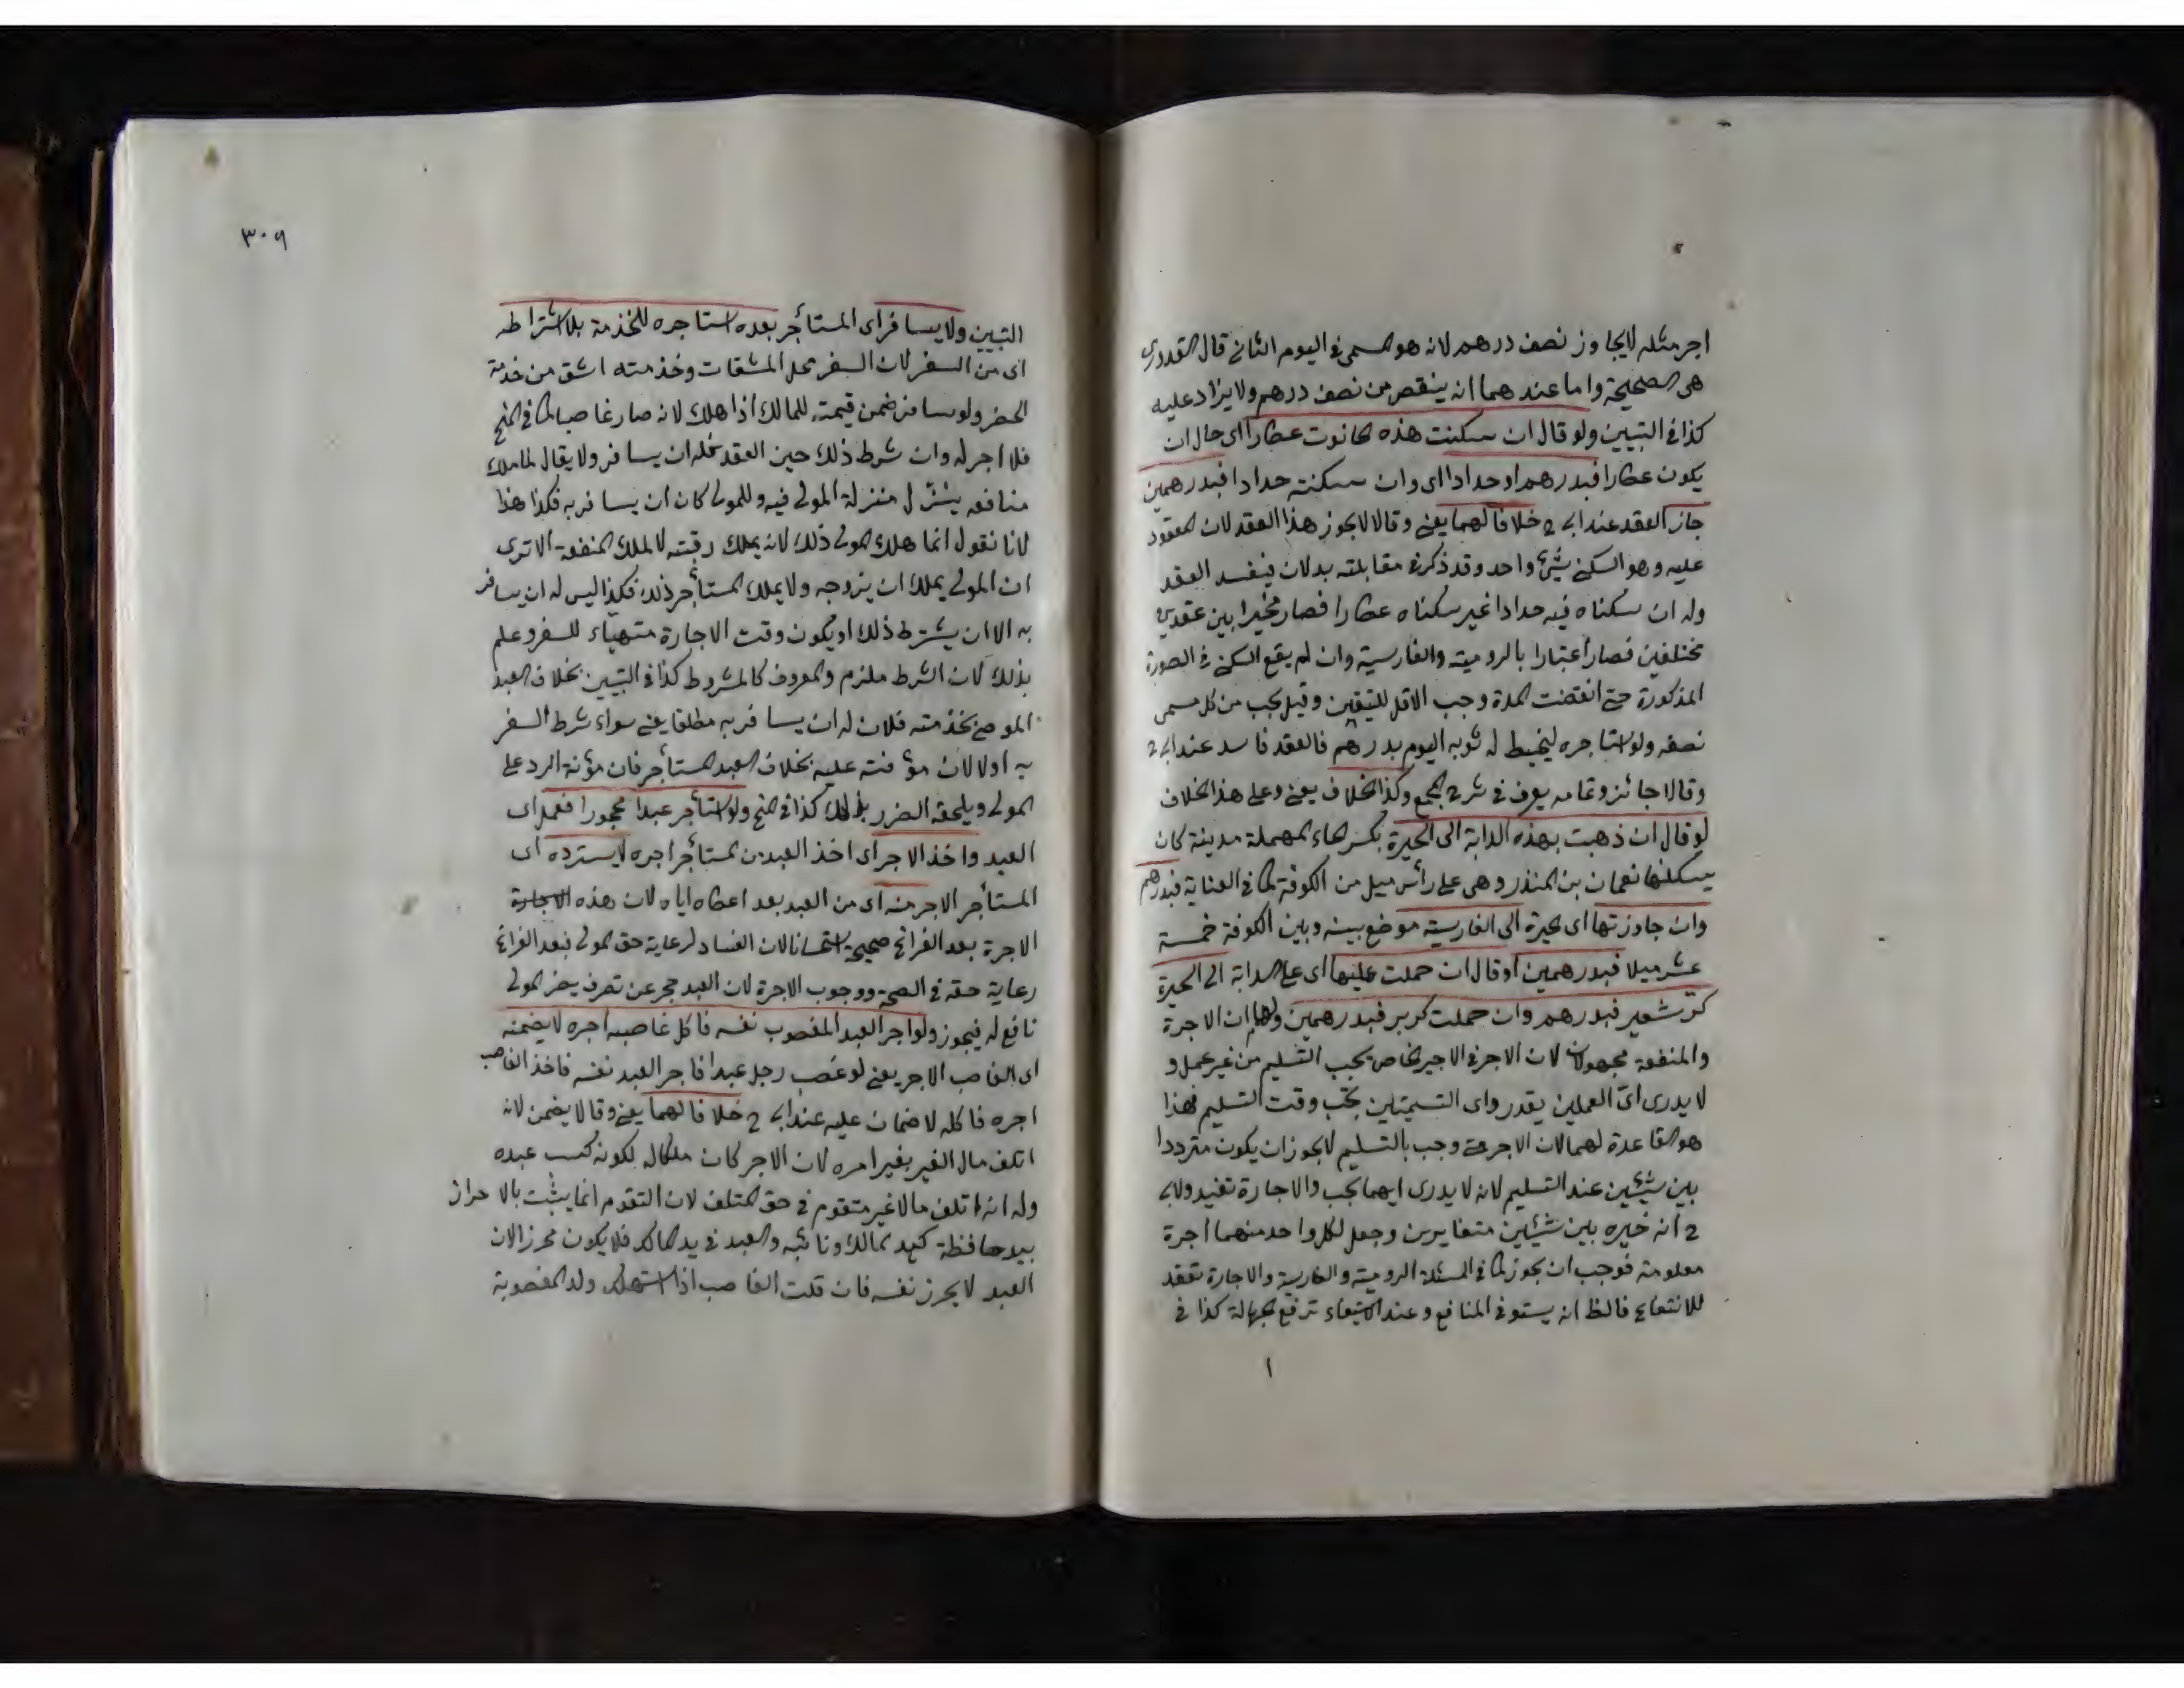 اجر مثله لا يجاوز نصف درهم لانه هو المسمى فى اليوم الثانى قال القدورى
هى الصحيحة واما عندهما انه ينقص من نصف درهم ولا يزاد عليه
كذا فى التبيين ولو قال ان سكنت هذه الحانوت عطارا اى حال ان
يكون عطارا فبدرهم او حدادا اى وان سكنته حدادا فبدرهمين
جاز العقد عند ابى ح خلافا لهما يعنى وقالا لا يجوز هذا العقد لان المعقود
عليه وهو السكنى شئ واحد وقد ذكر فى مقابلته بدلان فيفسد العقد
وله ان سكناه فيه حدادا غير سكناه عطارا فصار مخيرا بين عقدين
مختلفين فصار اعتبارا بالرومية والفارسية وان لم يقع السكنى فى الصورة
المذكورة حتى انقضت المدة وجب الاقل للتيقن وقيل يجب من كل مسمى
نصفه ولو استاجره ليخيط له ثوبه اليوم بدرهم فالعقد فاسد عند ابى ح
وقالا جائز وتمامه يعرف فى شرح المجمع وكذا الخلاف يعنى وعلى هذا الخلاف
لو قال ان ذهبت بهذه الدابة الى الحيرة بكسر الحاء المهملة مدينة كان
يسكنها نعمان بن المنذر وهى على رأس ميل من الكوفة كما فى العناية فبدرهم
وان جاوزتها اى الحيرة الى القادسية موضع بينه وبين الكوفة خمسة
عشر ميلا فبدرهمين او قال ان حملت عليها اى على الدابة الى الحيرة
كر شعير فبدرهم وان حملت كر بر فبدرهمين ولهما ان الاجرة
والمنفعة مجهولان لان الاجر فى الاجير الخاص يجب التسليم من غير عمل و
لا يدرى اىّ العملين يقدر واى التسميتين يجب وقت التسليم فهذا
هو القاعدة لهما لان الاجر متى وجب بالتسليم لا يجوز ان يكون مترددا
بين شيئين عند التسليم لانه لا يدرى ايهما يجب والاجارة تفيد ولابى
ح انه خيره بين شيئين متغايرين وجعل لكل واحد منهما اجرة
معلومة فوجب ان يجوز كما فى المسئلة الرومية والفارسية والاجارة تعقد
للانتفاع فالظ انه يستوفى المنافع وعند الاستيفاء ترفع الجهالة كذا فى
١
٣٠٩
التبيين ولا يسافر اى المستأجر بعبده استاجره للخدمة بلا اشتراطه
اى من السفر لان السفر محل المشقات وخدمته اشق من خدمة
الحضر ولو سافر ضمن قيمته للمالك اذا هلك لانه صار غاصبا كما فى المنح
فلا اجر له وان شرط ذلك حين العقد فله ان يسافر ولا يقال لما ملك
منافعه ينزّل منزلة المولى فيه وللمولى كان ان يسافر به فكذا هذا
لانا نقول انما هلك المولى ذلك لانه يملك رقبته لا لملك المنفعة الا ترى
ان المولى يملك ان يزوجه ولا يملك المستأجر ذلك فكذا ليس له ان يسافر
به الا ان يشترط ذلك او يكون وقت الاجارة متهيّاء للسفر وعلم
بذلك لان الشرط ملزم والمعروف كالمشروط كذا فى التبيين بخلاف العبد
الموصى بخدمته فلان له ان يسافر به مطلقا يعنى سواء شرط السفر
به اولا لان مؤنته عليه بخلاف العبد المستأجر فان مؤنة الرد على
المولى ويلحقه الضرر بذلك كذا فى المنح ولو استأجر عبدا محجورا فعمل اى
العبد واخذ الاجر اى اخذ العبد من المستأجر اجره لا يسترده اى
المستأجر الاجر منه اى من العبد بعد اعطاه اياه لان هذه الاجارة
الاجرة بعد الفراغ صحيحة استحسانا لان الفساد لرعاية حق المولى فبعد الفراغ
رعاية حقه فى الصحة ووجوب الاجرة لان العبد حجر عن تصرف يضر المولى
نافع له فيجوز ولو اجر العبد المغصوب نفسه فاكل غاصبه اجره لا يضمنه
اى الغاصب الاجر يعنى لو غصب رجل عبدا فاجر العبد نفسه فاخذ الغاصب
اجره فاكله لا ضمان عليه عند ابى ح خلافا لهما يعنى وقالا يضمن لانه
اتلف مال الغير بغير امره لان الاجر كان ملكا له لكونه كسب عبده
وله انه اتلف مالا غير متقوم فى حق المتلف لان التقوم انما يثبت بالاحراز
بيد حافظة كيد المالك ونائبه والعبد فى يد المالك فلا يكون محرزا لان
العبد لا يحرز نفسه فان قلت الغاصب اذا استهلك ولد المغصوبة